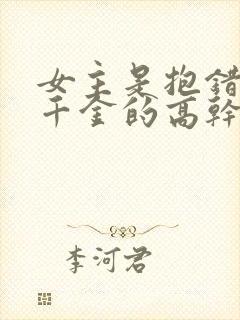 女主是抱错
千金的高幹
李河君